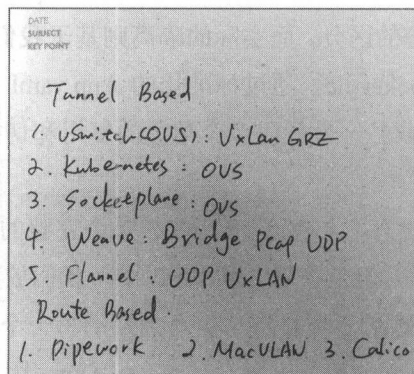 DATE
SUBJECT
KEY POINT
Tunnel Based
1. vSwitch(OVS): VxLan GRE
2. Kubernetes : OVS
3. Socketplane : OVS
4. Weave : Bridge Pcap UDP
5. Flannel : UDP VxLAN
Route Based.
1. Pipework 2. MacVLAN 3. Calico